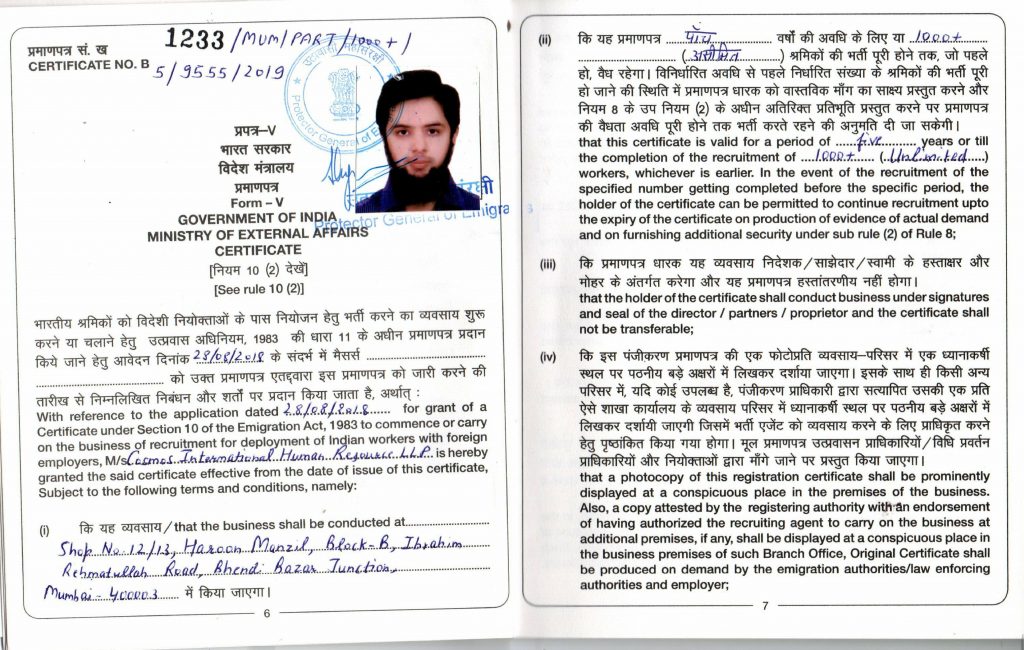 प्रमाणपत्र सं. ख
CERTIFICATE NO. B
1233/MUM/PART/1000+/
5/9555/2019
Protector General of Emi
प्रपत्र–V
भारत सरकार
विदेश मंत्रालय
प्रमाणपत्र
Form – V
Protector General of Emigra
GOVERNMENT OF INDIA
MINISTRY OF EXTERNAL AFFAIRS
CERTIFICATE
[नियम 10 (2) देखें]
[See rule 10 (2)]
भारतीय श्रमिकों को विदेशी नियोक्ताओं के पास नियोजन हेतु भर्ती करने का व्यवसाय शुरू
करने या चलाने हेतु उत्प्रवास अधिनियम, 1983 की धारा 11 के अधीन प्रमाणपत्र प्रदान
किये जाने हेतु आवेदन दिनांक 28/08/2018 के संदर्भ में मैसर्स
को उक्त प्रमाणपत्र एतद्द्वारा इस प्रमाणपत्र को जारी करने की
तारीख से निम्नलिखित निबंधन और शर्तों पर प्रदान किया जाता है, अर्थात् :
With reference to the application dated 28/08/2018 for grant of a
Certificate under Section 10 of the Emigration Act, 1983 to commence or carry
on the business of recruitment for deployment of Indian workers with foreign
employers, M/s Cosmos International Human Resource LLP. is hereby
granted the said certificate effective from the date of issue of this certificate,
Subject to the following terms and conditions, namely:
(i) कि यह व्यवसाय/that the business shall be conducted at
Shop No. 12/13, Haroon Manzil, Block-B, Ibrahim
Rehmatullah Road, Bhendi Bazar Junction,
Mumbai - 400003 में किया जाएगा।
6
(ii) कि यह प्रमाणपत्र पाँच वर्षो की अवधि के लिए या 1000+
(असीमित) श्रमिकों की भर्ती पूरी होने तक, जो पहले
हो, वैध रहेगा। विनिर्धारित अवधि से पहले निर्धारित संख्या के श्रमिकों की भर्ती पूरी
हो जाने की स्थिति में प्रमाणपत्र धारक को वास्तविक माँग का साक्ष्य प्रस्तुत करने और
नियम 8 के उप नियम (2) के अधीन अतिरिक्त प्रतिभूति प्रस्तुत करने पर प्रमाणपत्र
की वैधता अवधि पूरी होने तक भर्ती करते रहने की अनुमति दी जा सकेगी।
that this certificate is valid for a period of five years or till
the completion of the recruitment of 1000+ (Unlimited)
workers, whichever is earlier. In the event of the recruitment of the
specified number getting completed before the specific period, the
holder of the certificate can be permitted to continue recruitment upto
the expiry of the certificate on production of evidence of actual demand
and on furnishing additional security under sub rule (2) of Rule 8;
(iii) कि प्रमाणपत्र धारक यह व्यवसाय निदेशक/साझेदार/स्वामी के हस्ताक्षर और
मोहर के अंतर्गत करेगा और यह प्रमाणपत्र हस्तांतरणीय नहीं होगा।
that the holder of the certificate shall conduct business under signatures
and seal of the director / partners / proprietor and the certificate shall
not be transferable;
(iv) कि इस पंजीकरण प्रमाणपत्र की एक फोटोप्रति व्यवसाय–परिसर में एक ध्यानाकर्षी
स्थल पर पठनीय बड़े अक्षरों में लिखकर दर्शाया जाएगा। इसके साथ ही किसी अन्य
परिसर में, यदि कोई उपलब्ध है, पंजीकरण प्राधिकारी द्वारा सत्यापित उसकी एक प्रति
ऐसे शाखा कार्यालय के व्यवसाय परिसर में ध्यानाकर्षी स्थल पर पठनीय बड़े अक्षरों में
लिखकर दर्शायी जाएगी जिसमें भर्ती एजेंट को व्यवसाय करने के लिए प्राधिकृत करने
हेतु पृष्ठांकित किया गया होगा। मूल प्रमाणपत्र उत्प्रवासन प्राधिकारियों/विधि प्रवर्तन
प्राधिकारियों और नियोक्ताओं द्वारा माँगे जाने पर प्रस्तुत किया जाएगा।
that a photocopy of this registration certificate shall be prominently
displayed at a conspicuous place in the premises of the business.
Also, a copy attested by the registering authority with an endorsement
of having authorized the recruiting agent to carry on the business at
additional premises, if any, shall be displayed at a conspicuous place in
the business premises of such Branch Office, Original Certificate shall
be produced on demand by the emigration authorities/law enforcing
authorities and employer;
7